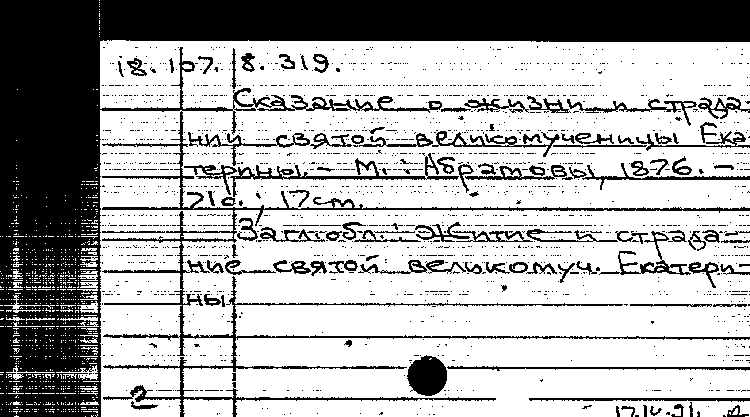 18.107.8.319.
Сказание о жизни и страда-
нии святой великомученицы Ека-
терины. – М.: Абрамовы, 1876. –
71с.; 17см.
Загл.обл.: Житие и страда-
ние святой великомуч. Екатери-
ны.
2